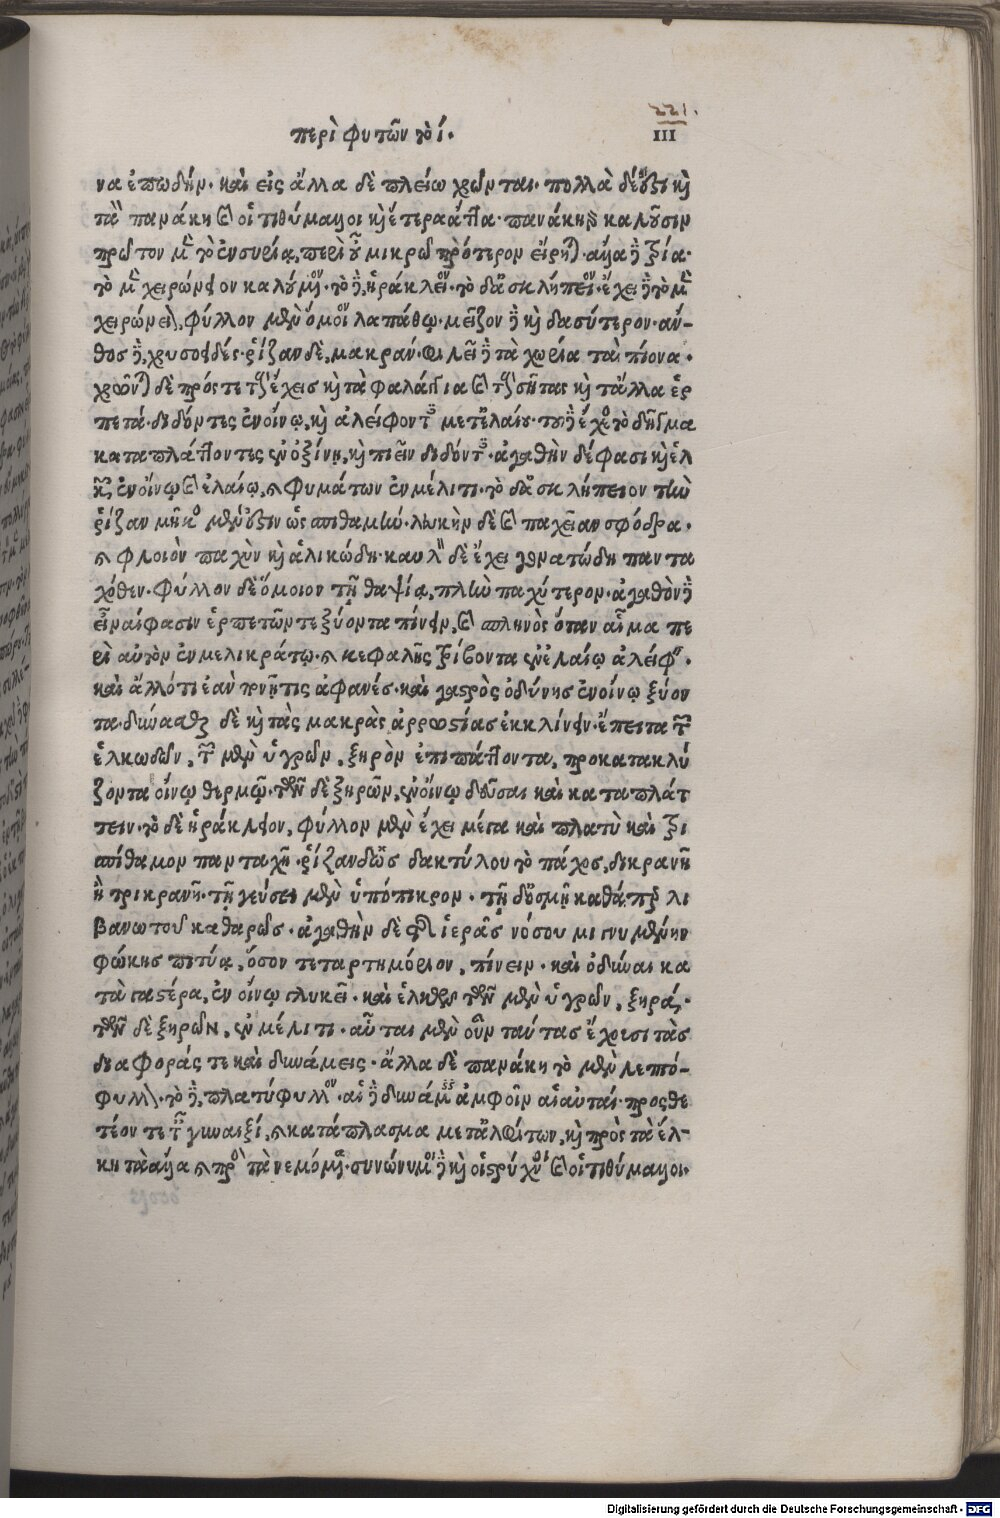 221.
περὶ φυτῶν τὸ ί. III
να ἐπωδήν· καὶ εἰς ἄλλα δὲ πλείω χρῶνται· πολλὰ δέ ὅζι κὴ
πανάκη καὶ οἱ τιθύμαλλοι καὶ ἕτερα ἄττα· πανάκης καλοῦσιν
πρῶτον μὲν τὸ ἐν συρίᾳ, περὶ οὗ μικρῷ πρότερον εἴρηται· ἄλλα δὲ τρία·
τὸ μὲν χειρώνειον καλούμενον· τὸ δὲ, ἡράκλειον· τὸ δ' ἀσκληπειον· ἔχει δὲ τὸ μὲν
χειρώνειον, φύλλον μὲν ὅμοιον λαπάθῳ· μεῖζον δὲ καὶ δασύτερον· ἄν-
θος δὲ, χρυσοειδές· ῥίζαν δὲ, μακράν· φιλεῖ δὲ τὰ χωρία τὰ πίονα·
χρῶνται δὲ πρός τε τοὺς ἔχεις καὶ τὰ φαλάγγια καὶ τοὺς σῆπας καὶ τἄλλα ἑρ
πετά· διδόντες ἐν οἴνῳ, καὶ ἀλείφοντες μετ' ἐλαίου· τοῦ δὲ ἔχεως τὸ δῆγμα
καταπλάττοντες ἐν ὀξίνῃ, καὶ πιεῖν διδόντες· ἀγαθὴν δέ φασι καὶ ἑλ
κῶν ἐν οἴνῳ καὶ ἐλαίῳ, καὶ φυμάτων ἐν μέλιτι· τὸ δ' ἀσκλήπειον τὴν
ῥίζαν μῆκος μὲν ὅζιν ὡς σπιθαμὴν· λευκὴν δὲ καὶ παχεῖαν σφόδρα·
καὶ φλοιὸν παχὺν καὶ ἁλικώδη· καυλὸν δὲ ἔχει γονατώδη πάντα
χόθεν· φύλλον δὲ ὅμοιον τῇ θαψίᾳ, πλὴν παχύτερον· ἀγαθὸν δὲ
εἶναί φασιν ἑρπετῶν τε ξύοντα πίνειν, καὶ σπληνὸς ὅταν αἷμα πε
ρὶ αὐτὸν ἐν μελικράτῳ· καὶ κεφαλῆς τρίβοντα ἐν ἐλαίῳ ἀλείφειν·
καὶ ἄλλό τι ἐὰν πονῇ τις ἀφανές· καὶ γαστρὸς ὀδύνης ἐν οἴνῳ ξύον
τα· δύνασθαι δὲ καὶ τὰς μακρὰς ἀρρωστίας ἐκκλίνειν· ἔπειτα τῶν
ἑλκωδῶν, τῶν μὲν ὑγρῶν, ξηρὸν ἐπιπάττοντα, προκατακλύ
ζοντα οἴνῳ θερμῷ· τῶν δὲ ξηρῶν, ἐν οἴνῳ δεῦσαι καὶ καταπλάτ
τειν· τὸ δὲ ἡράκλειον, φύλλον μὲν ἔχει μέγα καὶ πλατὺ καὶ τρι
σπίθαμον πανταχῇ· ῥίζαν δὲ ὡς δακτύλου τὸ πάχος, δικρανῆ
ἢ τρικρανῆ· τῇ γεύσει μὲν ὑπόπικρον· τῇ δ' ὀσμῇ καθάπερ λι
βανωτοῦ καθαρῶς· ἀγαθὴν δὲ τῆς ἱερᾶς νόσου μιγνυμένην
φώκης πιτύᾳ, ὅσον τεταρτημόριον, πίνειν· καὶ ὀδύναι κα
τὰ γαστέρα, ἐν οἴνῳ γλυκεῖ· καὶ ἑλκῶν τῶν μὲν ὑγρῶν, ξηράς·
τῶν δὲ ξηρῶν, ἐν μέλιτι· αὗται μὲν οὖν ταύτας ἔχουσι τὰς
διαφοράς τε καὶ δυνάμεις· ἄλλα δὲ πανάκη τὸ μὲν λεπτό-
φυλλον· τὸ δὲ, πλατύφυλλον· αἱ δὲ δυνάμεις ἀμφοῖν αἱ αὐταί· πρόςθε
τέον τε γυναιξί, καὶ κατάπλασμα μετ' ἀλφίτων, καὶ πρὸς τὰ ἕλ-
κη τὰ ἄλλα καὶ πρὸς τὰ νεμόμενα· συνώνυμοι δὲ καὶ οἱ στρύχνοι καὶ οἱ τιθύμαλλοι·
Digitalisierung gefördert durch die Deutsche Forschungsgemeinschaft - DFG